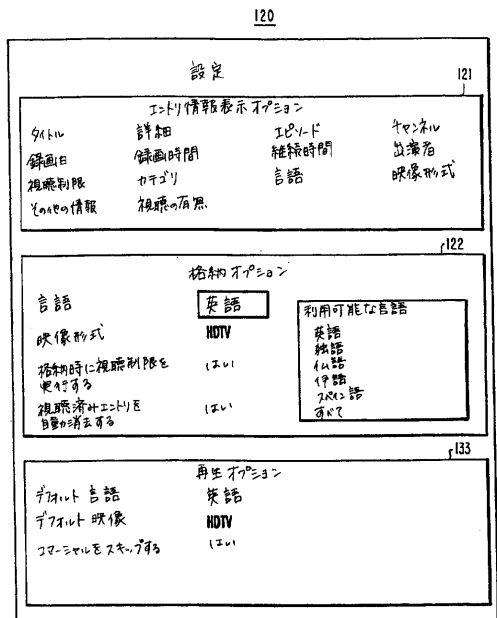 120
設定
121
エントリ情報表示オプション
タイトル 詳細 エピソード チャンネル
録画日 録画時間 継続時間 出演者
視聴制限 カテゴリ 言語 映像形式
その他の情報 視聴の有無
122
格納オプション
言語 英語
映像形式 HDTV
格納時に視聴制限を
実行する はい
視聴済みエントリを
自動消去する はい
利用可能な言語
英語
独語
仏語
伊語
スペイン語
すべて
133
再生オプション
デフォルト言語 英語
デフォルト映像 HDTV
コマーシャルをスキップする はい